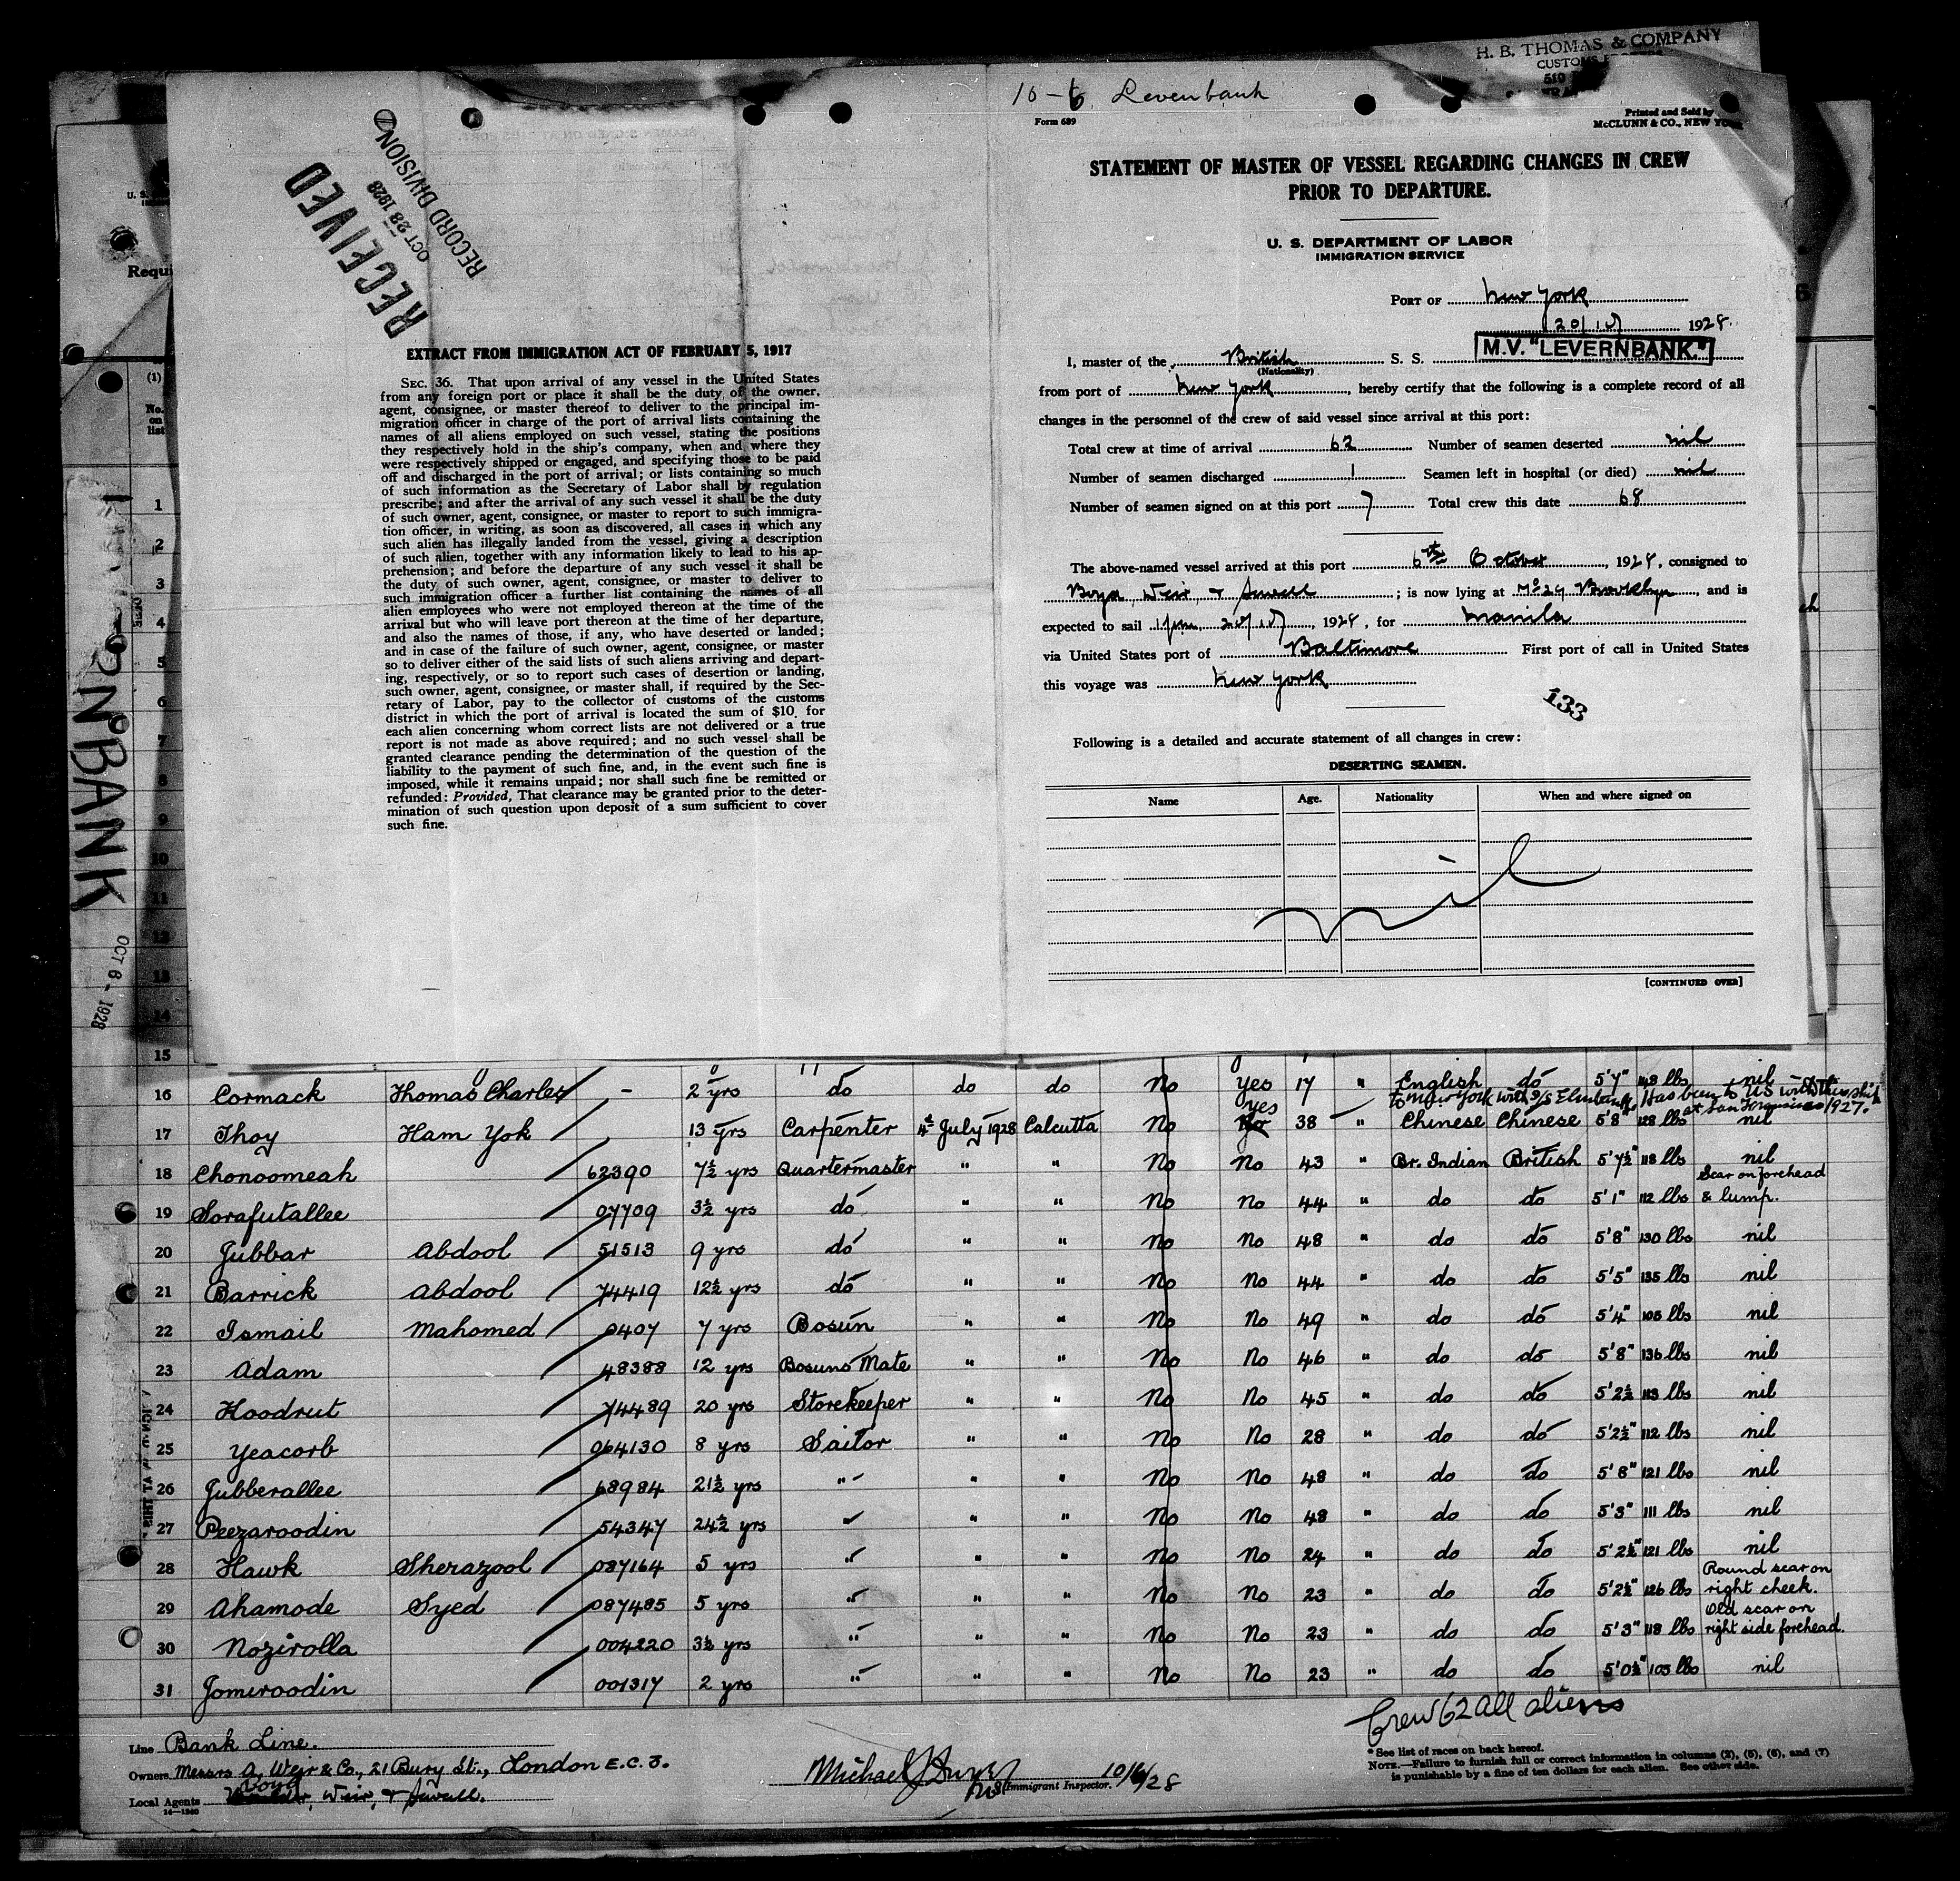 H. B. THOMAS & COMPANY
510
RECEIVED
OCT 23 1928
RECORD DIVISION
EXTRACT FROM IMMIGRATION ACT OF FEBRUARY 5, 1917
SEC. 36. That upon arrival of any vessel in the United States
from any foreign port or place it shall be the duty of the owner,
agent, consignee, or master thereof to deliver to the principal im-
migration officer in charge of the port of arrival lists containing the
names of all aliens employed on such vessel, stating the positions
they respectively hold in the ship's company, when and where they
were respectively shipped or engaged, and specifying those to be paid
off and discharged in the port of arrival; or lists containing so much
of such information as the Secretary of Labor shall by regulation
prescribe; and after the arrival of any such vessel it shall be the duty
of such owner, agent, consignee, or master to report to such immigra-
tion officer, in writing, as soon as discovered, all cases in which any
such alien has illegally landed from the vessel, giving a description
of such alien, together with any information likely to lead to his ap-
prehension; and before the departure of any such vessel it shall be
the duty of such owner, agent, consignee, or master to deliver to
such immigration officer a further list containing the names of all
alien employees who were not employed thereon at the time of the
arrival but who will leave port thereon at the time of her departure,
and also the names of those, if any, who have deserted or landed;
and in case of the failure of such owner, agent, consignee, or master
so to deliver either of the said lists of such aliens arriving and depart-
ing, respectively, or so to report such cases of desertion or landing,
such owner, agent, consignee, or master shall, if required by the Sec-
retary of Labor, pay to the collector of customs of the customs
district in which the port of arrival is located the sum of $10 for
each alien concerning whom correct lists are not delivered or a true
report is not made as above required; and no such vessel shall be
granted clearance pending the determination of the question of the
liability to the payment of such fine, and, in the event such fine is
imposed, while it remains unpaid; nor shall such fine be remitted or
refunded: Provided, That clearance may be granted prior to the deter-
mination of such question upon deposit of a sum sufficient to cover
such fine.
10-6 Levenbank
Form 689
Printed and Sold by
McCLUNN & CO., NEW YORK
STATEMENT OF MASTER OF VESSEL REGARDING CHANGES IN CREW
PRIOR TO DEPARTURE.
U. S. DEPARTMENT OF LABOR
IMMIGRATION SERVICE
PORT OF New York
20/10 1928.
I, master of the British S. S. M.V. "LEVERNBANK."
(Nationality)
from port of New York, hereby certify that the following is a complete record of all
changes in the personnel of the crew of said vessel since arrival at this port:
Total crew at time of arrival 62 Number of seamen deserted nil
Number of seamen discharged 1 Seamen left in hospital (or died) nil
Number of seamen signed on at this port 7 Total crew this date 68
The above-named vessel arrived at this port 6th October, 1928, consigned to
Boyd, Weir, & Sewell; is now lying at No 29 Brooklyn, and is
expected to sail 1 pm 20/10, 1928, for Manila
via United States port of Baltimore First port of call in United States
this voyage was New York
133
Following is a detailed and accurate statement of all changes in crew:
DESERTING SEAMEN.
Name Age. Nationality When and where signed on
nil
[CONTINUED OVER]
U. S.
Requ
(1)
No. on list
1
2
3
4
5
6
7
8
9
10
11
12
13
14
15
RNBANK
OCT 6 - 1928
16 Cormack Thomas Charles - 2 yrs do do do No Yes 17 " English do 5'7" 148 lbs nil
to New York with s/s Elmbank. Has been to US with this ship at San Francisco 1927.
17 Thoy Ham Yok 13 yrs Carpenter 4th July 1928 Calcutta No yes 38 " Chinese Chinese 5'8" 128 lbs nil
18 Chonoomeah 62390 7½ yrs Quartermaster " " No No 43 " Br. Indian British 5'7½" 118 lbs nil
19 Sorafutallee 07709 3½ yrs do " " No No 44 " do do 5'1" 112 lbs Scar on forehead & lump.
20 Jubbar Abdool 51513 9 yrs do " " No No 48 " do do 5'8" 130 lbs nil
21 Barrick Abdool 74419 12½ yrs do " " No No 44 " do do 5'5" 135 lbs nil
22 Ismail Mahomed 0407 7 yrs Bosun " " No No 49 " do do 5'4" 105 lbs nil
23 Adam 48388 12 yrs Bosuns Mate " " No No 46 " do do 5'8" 136 lbs nil
24 Hoodrut 74489 20 yrs Storekeeper " " No No 45 " do do 5'2½ 113 lbs nil
25 Yeacorb 064130 8 yrs Sailor " " No No 28 " do do 5'2½" 112 lbs nil
26 Jubberallee 68984 21½ yrs " " " No No 48 " do do 5'6" 121 lbs nil
27 Peezaroodin 54347 24½ yrs " " " No No 48 " do do 5'3" 111 lbs nil
28 Hawk Sherazool 087164 5 yrs " " " No No 24 " do do 5'2½" 121 lbs nil
29 Ahamode Syed 087485 5 yrs " " " No No 23 " do do 5'2½" 126 lbs Round scar on right cheek.
30 Nozirolla 004220 3½ yrs " " " No No 23 " do do 5'3" 118 lbs Old scar on right side forehead.
31 Jomiroodin 001317 2 yrs " " " No No 23 " do do 5'0½" 105 lbs nil
Crew 62 all aliens
Line Bank Line.
Owners Messrs A. Weir & Co., 21 Bury St., London E.C.3.
Local Agents Boyd, Weir, & Sewell.
14—1240
Michael J
Immigrant Inspector. 10/6/28
* See list of races on back hereof.
NOTE.—Failure to furnish full or correct information in columns (2), (5), (6), and (7)
is punishable by a fine of ten dollars for each alien. See other side.